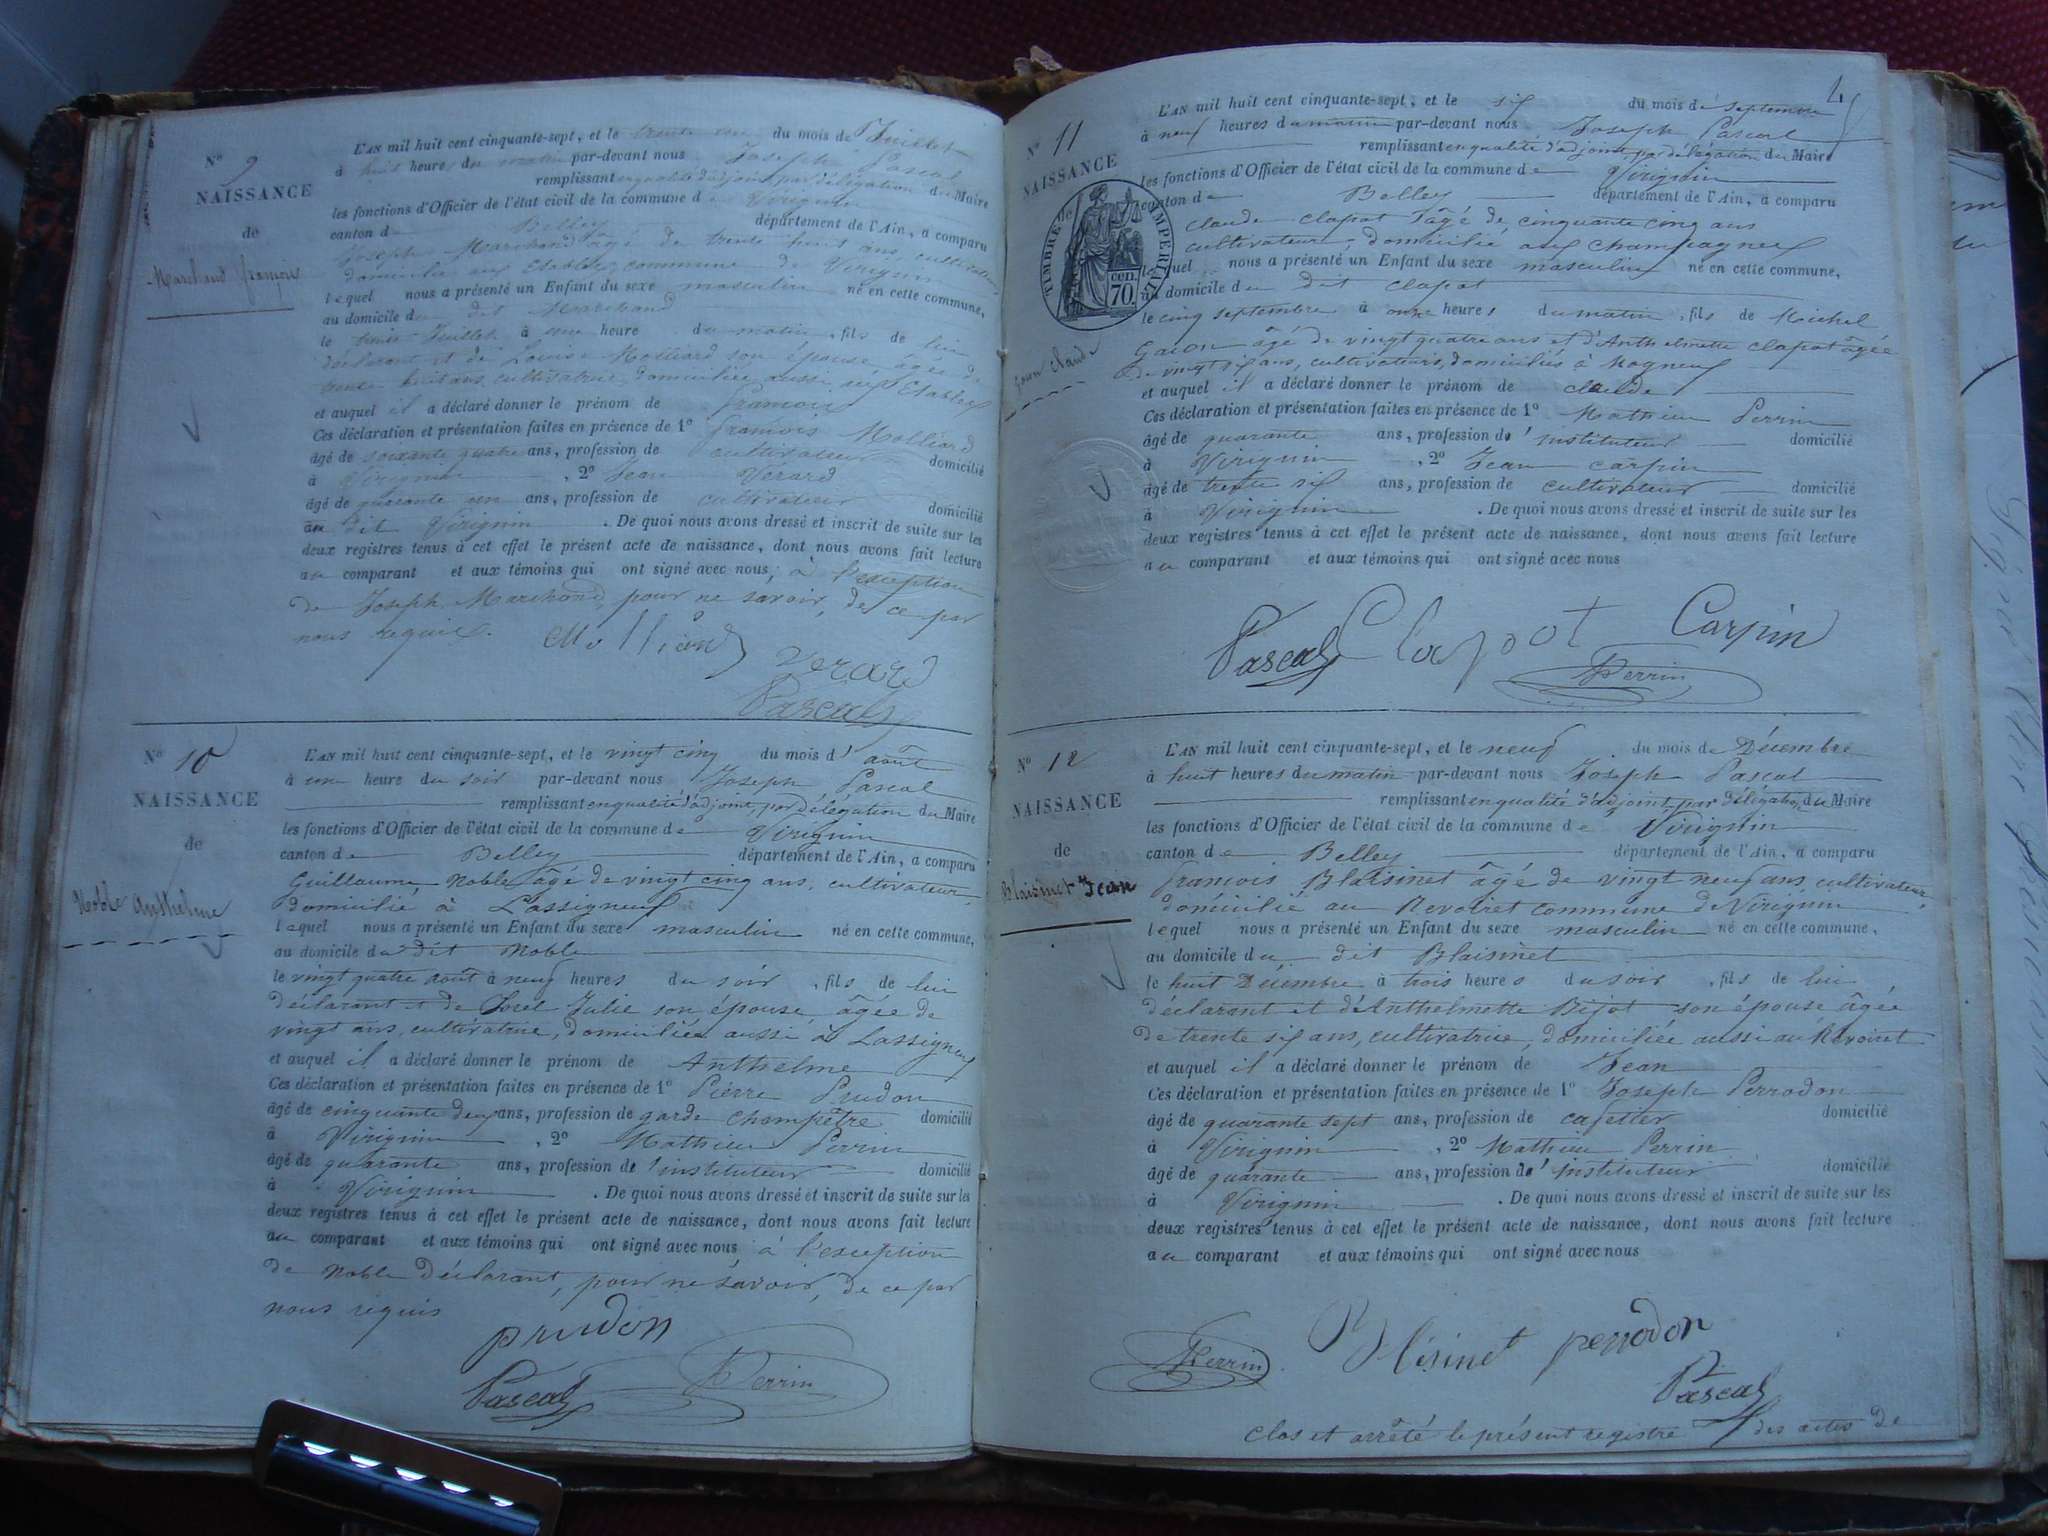 N° 9
NAISSANCE
de
Marchand françois
L'AN mil huit cent cinquante-sept, et le trente un du mois de Juillet
à huit heures du matin par-devant nous Joseph Pascal
remplissant en qualité d'adjoint, par délégation du Maire
les fonctions d'Officier de l'état civil de la commune de Virignin
canton de Belley département de l'Ain, a comparu
Joseph Marchand âgé de trente huit ans, cultivateur,
domicilié aux Etables commune de Virignin
lequel nous a présenté un Enfant du sexe masculin né en cette commune,
au domicile du dit Marchand
le trente Juillet à une heure du matin, fils de lui
déclarant et de Louise Molliard son épouse, âgée de
trente huit ans, cultivatrice, domiciliée aussi aux Etables
et auquel il a déclaré donner le prénom de françois
Ces déclaration et présentation faites en présence de 1° françois Molliard
âgé de soixante quatre ans, profession de cultivateur domicilié
à Virignin, 2° Jean Vérard
âgé de quarante un ans, profession de cultivateur domicilié
au dit Virignin. De quoi nous avons dressé et inscrit de suite sur les
deux registres tenus à cet effet le présent acte de naissance, dont nous avons fait lecture
au comparant et aux témoins qui ont signé avec nous, à l'exception
de Joseph Marchand, pour ne savoir, de ce par
nous requis.
Molliard
Verard
Pascal
N° 10
NAISSANCE
de
Noble Anthelme
L'AN mil huit cent cinquante-sept, et le vingt cinq du mois d'août
à une heure du soir par-devant nous Joseph Pascal
remplissant en qualité d'adjoint, par délégation du Maire
les fonctions d'Officier de l'état civil de la commune de Virignin
canton de Belley département de l'Ain, a comparu
Guillaume Noble âgé de vingt cinq ans, cultivateur,
domicilié à Lassigneux
lequel nous a présenté un Enfant du sexe masculin né en cette commune,
au domicile du dit Noble
le vingt quatre août à neuf heures du soir, fils de lui
déclarant et de Julie son épouse, âgée de
vingt ans, cultivatrice, domiciliée aussi à Lassigneux
et auquel il a déclaré donner le prénom de Anthelme
Ces déclaration et présentation faites en présence de 1° Pierre Prudon
âgé de cinquante deux ans, profession de garde champêtre domicilié
à Virignin, 2° Mathieu Perrin
âgé de quarante ans, profession de l'instituteur domicilié
à Virignin. De quoi nous avons dressé et inscrit de suite sur les
deux registres tenus à cet effet le présent acte de naissance, dont nous avons fait lecture
au comparant et aux témoins qui ont signé avec nous à l'exception
de Noble déclarant, pour ne savoir, de ce par
nous requis
prudon
Pascal Perrin
4
N° 11
NAISSANCE
TIMBRE IMPERIAL
70 cen
Claude
L'AN mil huit cent cinquante-sept, et le six du mois de Septembre
à neuf heures du matin par-devant nous Joseph Pascal
remplissant en qualité d'adjoint, par délégation du Maire
les fonctions d'Officier de l'état civil de la commune de Virignin
canton de Belley département de l'Ain, a comparu
Claude Clapot âgé de cinquante cinq ans
cultivateur, domicilié aux Champagneux
lequel nous a présenté un Enfant du sexe masculin né en cette commune,
au domicile du dit Clapot
le cinq septembre à onze heures du matin, fils de Michel
âgé de vingt quatre ans et d'Anthelmette Clapot âgée
de vingt six ans, cultivateurs, domiciliés à Magneux
et auquel il a déclaré donner le prénom de claude
Ces déclaration et présentation faites en présence de 1° Mathieu Perrin
âgé de quarante ans, profession de l'instituteur domicilié
à Virignin, 2° Jean Carpin
âgé de trente six ans, profession de cultivateur domicilié
à Virignin. De quoi nous avons dressé et inscrit de suite sur les
deux registres tenus à cet effet le présent acte de naissance, dont nous avons fait lecture
au comparant et aux témoins qui ont signé avec nous
Pascal Clapot Carpin
Perrin
N° 12
NAISSANCE
de
Blaisinet Jean
L'AN mil huit cent cinquante-sept, et le neuf du mois de Décembre
à huit heures du matin par-devant nous Joseph Pascal
remplissant en qualité d'adjoint par délégation du Maire
les fonctions d'Officier de l'état civil de la commune de Virignin
canton de Belley département de l'Ain, a comparu
françois Blaisinet âgé de vingt neuf ans, cultivateur,
domicilié au Revoiret commune de Virignin
lequel nous a présenté un Enfant du sexe masculin né en cette commune,
au domicile du dit Blaisinet
le huit Décembre à trois heures du soir, fils de lui
déclarant et d'Anthelmette Bijot son épouse âgée
de trente six ans, cultivatrice, domiciliée aussi au Revoiret
et auquel il a déclaré donner le prénom de Jean
Ces déclaration et présentation faites en présence de 1° Joseph Perrodon
âgé de quarante sept ans, profession de cafetier domicilié
à Virignin, 2° Mathieu Perrin
âgé de quarante ans, profession de l'instituteur domicilié
à Virignin. De quoi nous avons dressé et inscrit de suite sur les
deux registres tenus à cet effet le présent acte de naissance, dont nous avons fait lecture
au comparant et aux témoins qui ont signé avec nous
Perrin Blésinet perrodon
Pascal
Clos et arrêté le présent registre des actes de